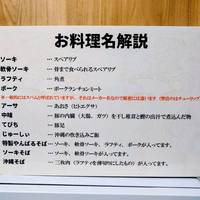 お料理名解説
ソーキ …スペアリブ
軟骨ソーキ …骨まで食べられるスペアリブ
ラフティ …角煮
ポーク …ポークランチョンミート
※一般的にはスパムと呼ばれていますが、それはメーカー名なので厳密には違います(弊店のはチューリップ)
アーサ …あおさ(ヒトエグサ)
中味 …豚の内臓(大腸、ガツ)を干し椎茸と鰹の出汁で煮込んだ物
てびち …豚足
じゅーしぃ …沖縄の炊き込みご飯
特製やんばるそば …ソーキ、軟骨ソーキ、ラフティ、ポークが入ってます。
ソーキそば …ソーキ、軟骨ソーキが入ってます。
沖縄そば …三枚肉(ラフティを薄切りにしたもの)が入ってます。